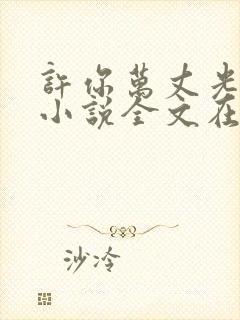 許你萬丈光
小說全文在
沙冷